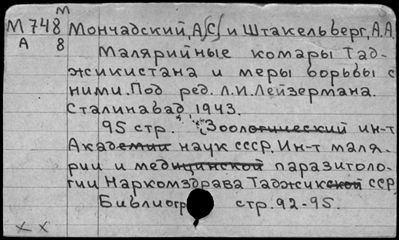 М
М 748 Мончадский, А.С. и Штакельберг, А.А.
А 8
Малярийные комары Тад-
жикистана и меры борьбы с
ними. Под ред. Л.И. Лейзермана.
Сталинабад 1943.
95 стр. Зоологический ин-т
Академии наук СССР. Ин-т маля-
рии и медицинской паразитоло-
гии Наркомздрава Таджикской ССР
Библиогр стр. 92-95.
х х